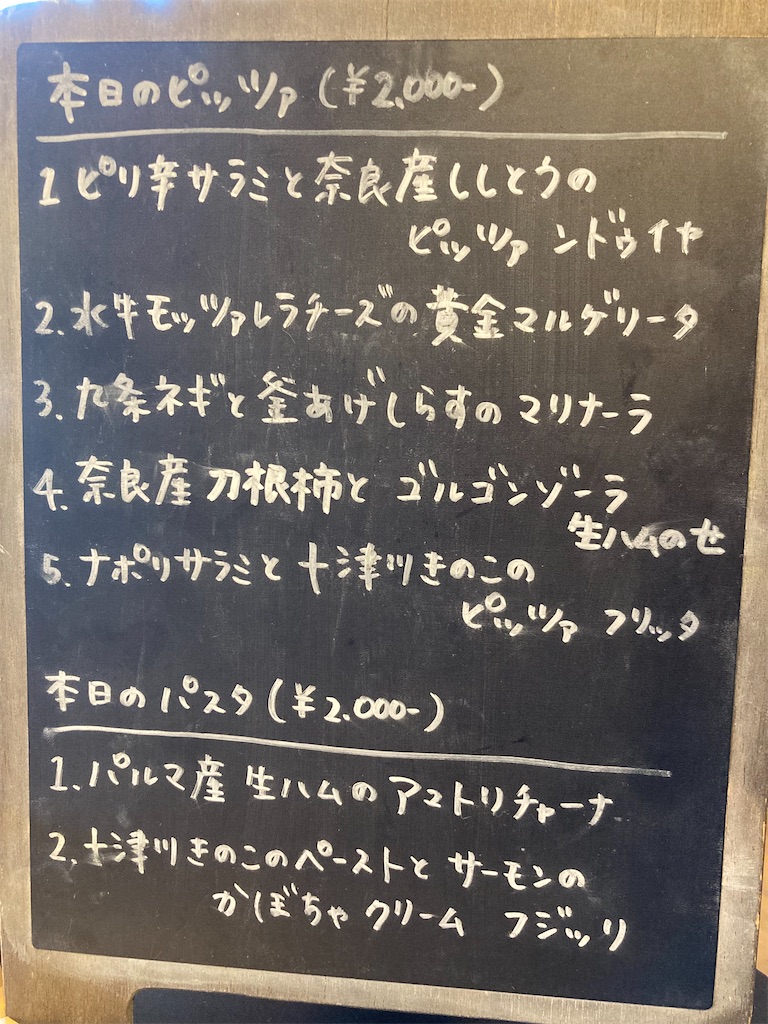 本日のピッツァ(¥2.000-)
1 ピリ辛サラミと奈良産ししとうの
ピッツァ ンドゥイヤ
2. 水牛モッツァレラチーズの黄金マルゲリータ
3. 九条ネギと釜あげしらすのマリナーラ
4. 奈良産刀根柿と ゴルゴンゾーラ
生ハムのせ
5. ナポリサラミと十津川きのこの
ピッツァ フリッタ
本日のパスタ(¥2.000-)
1. パルマ産 生ハムのアマトリチャーナ
2. 十津川きのこのペーストと サーモンの
かぼちゃクリーム フジッリ